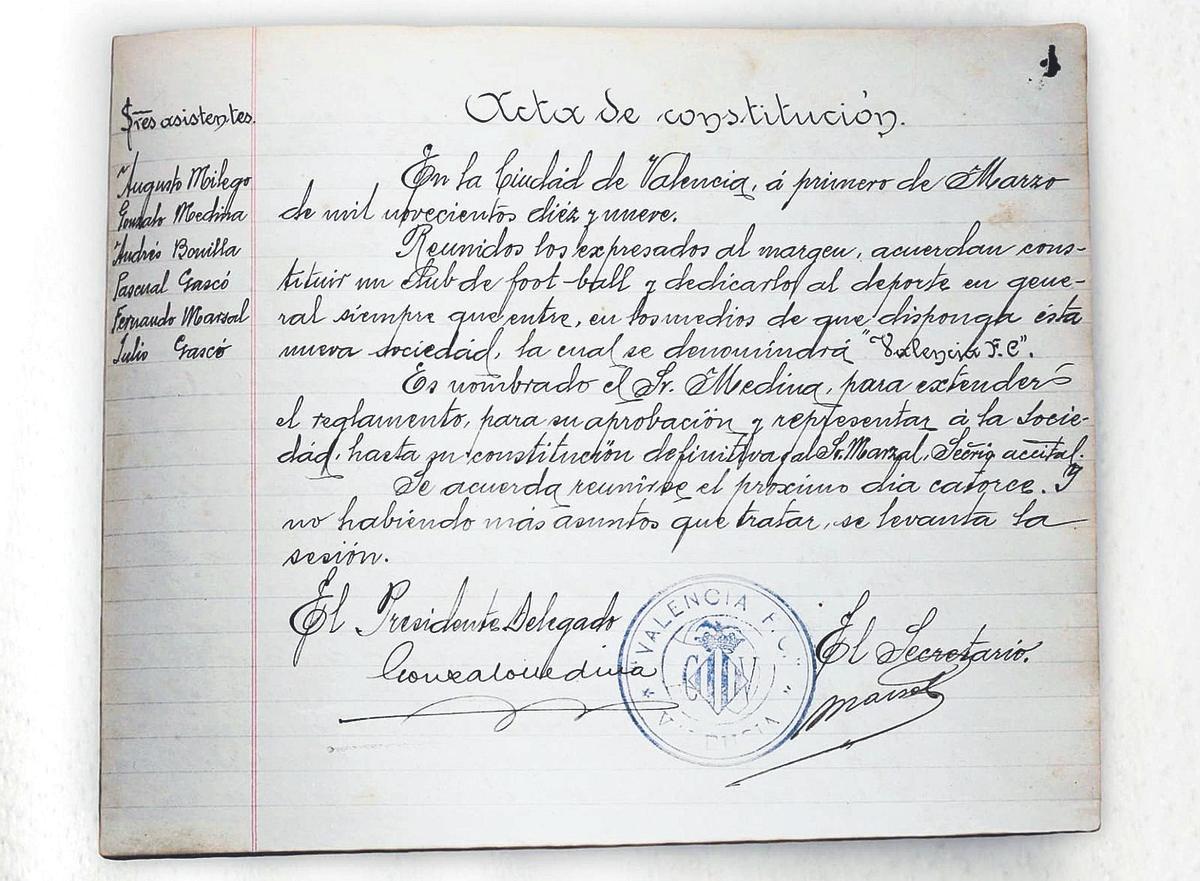 1
Sres asistentes.
Augusto Milego
Gonzalo Medina
Andrés Bonilla
Pascual Gascó
Fernando Marsal
Julio Gascó
Acta de constitución.
En la Ciudad de Valencia, á primero de Marzo
de mil novecientos diéz y nueve.
Reunidos los expresados al margen, acuerdan cons-
tituir un Club de foot-ball y dedicarlo al deporte en gene-
ral siempre que entre, en los medios de que disponga ésta
nueva sociedad, la cual se denomindrá "Valencia F.C".
Es nombrado el Sr. Medina, para extender
el reglamento, para su aprobación y representar á la Socie-
dád, hasta su constitución definitiva y al Sr. Marzal, Secrio accital.
Se acuerda reunirse el próximo dia catorce. Y
no habiendo más asuntos que tratar, se levanta la
sesión.
El Presidente Delegado
Gonzalo Medina
VALENCIA F.C.
VALENCIA
El Secretario.
Marsal